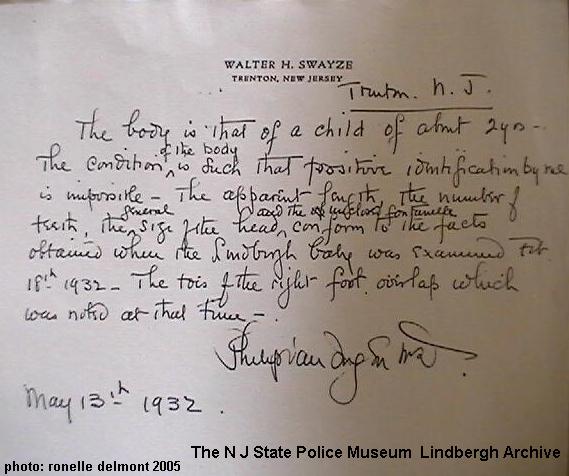 WALTER H. SWAYZE
TRENTON, NEW JERSEY
Trenton. N. J.
The body is that of a child of about 2 yrs -
of the body
The condition ^ is such that possitive identification by me
is impossible - The apparent length the number of
general and the unclosed fontanelle
teeth, the ^ size of the head, conform to the facts
obtained when the Lindbergh baby was examined Feb
18th 1932 - The toes of the right foot overlap which
was noted at that time -.
Philip Van Ingen MD
May 13th 1932.
The N J State Police Museum Lindbergh Archive
photo: ronelle delmont 2005